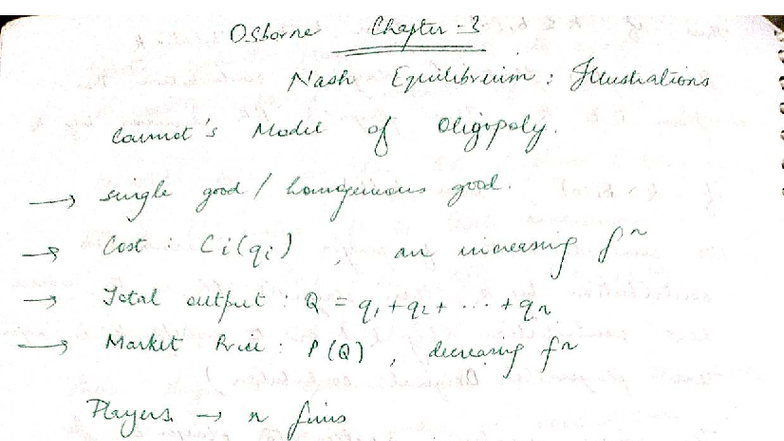 Osborne Chapter - 3
Nash Equilibrium : Illustrations
Cournot's Model of Oligopoly.
→ single good / homogenous good.
→ Cost : Ci(qi) , an increasing fⁿ
→ Total output : Q = q₁ + q₂ + ... + qₙ
→ Market Price : P(Q) , decreasing fⁿ
Players → n firms